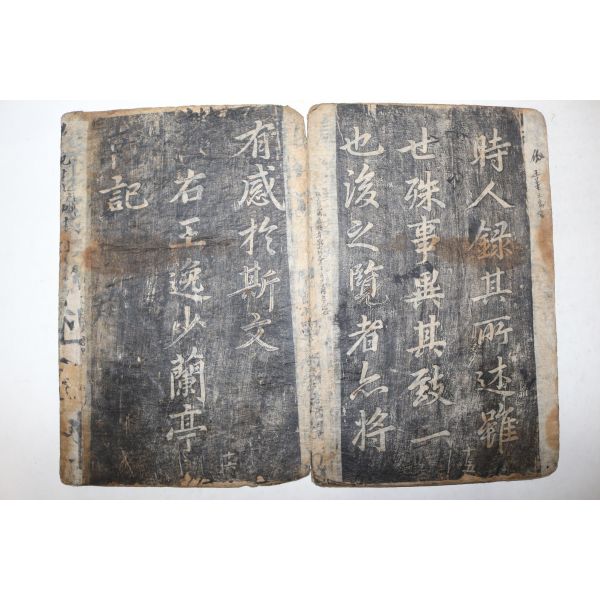 時人録其所述雖
世殊事異其致一
也後之覽者亦將
有感於斯文
右王逸少蘭亭
記